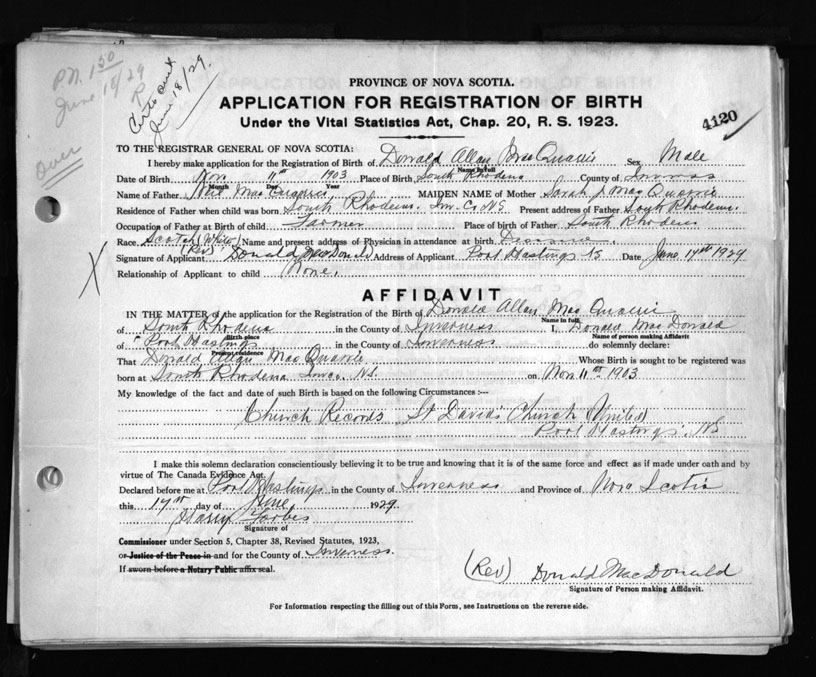 P.N. 150
June 18/29
Over
Certs sent
June 18/29.
4120
PROVINCE OF NOVA SCOTIA.
APPLICATION FOR REGISTRATION OF BIRTH
Under the Vital Statistics Act, Chap. 20, R. S. 1923.
TO THE REGISTRAR GENERAL OF NOVA SCOTIA:
I hereby make application for the Registration of Birth of Donald Allan MacQuarrie Sex Male
Name in full
Date of Birth Nov 11th 1903 Place of Birth South Rhodena County of
Month Day Year
Name of Father Neil MacQuarrie MAIDEN NAME of Mother Sarah J MacQuarrie
Residence of Father when child was born South Rhodena. In. Co. N.S. Present address of Father South Rhodena.
Occupation of Father at Birth of child Farmer Place of birth of Father South Rhodena
Race Scotch (White) Name and present address of Physician in attendance at birth
Signature of Applicant (Rev) Donald MacDonald Address of Applicant Port Hastings NS Date June 17th 1929
Relationship of Applicant to child None.
AFFIDAVIT
IN THE MATTER of the application for the Registration of the Birth of Donald Allan MacQuarrie
Name in full
of South Rhodena in the County of Inverness I, Donald MacDonald
Birth place Name of person making Affidavit
of Port Hastings in the County of Inverness do solemnly declare:
Present residence
That Donald Allan MacQuarrie Whose Birth is sought to be registered was
born at South Rhodena Inver. NS. on Nov 11th 1903
My knowledge of the fact and date of such Birth is based on the following Circumstances :--
Church Records St David's Church (United)
Port Hastings. NS
I make this solemn declaration conscientiously believing it to be true and knowing that it is of the same force and effect as if made under oath and by
virtue of The Canada Evidence Act.
Declared before me at Port Hastings in the County of Inverness and Province of Nova Scotia
this 17th day of June 1929.
Harry Forbes
Signature of
Commissioner under Section 5, Chapter 38, Revised Statutes, 1923,
or Justice of the Peace in and for the County of Inverness.
If sworn before a Notary Public affix seal.
(Rev) Donald MacDonald
Signature of Person making Affidavit.
For Information respecting the filling out of this Form, see Instructions on the reverse side.